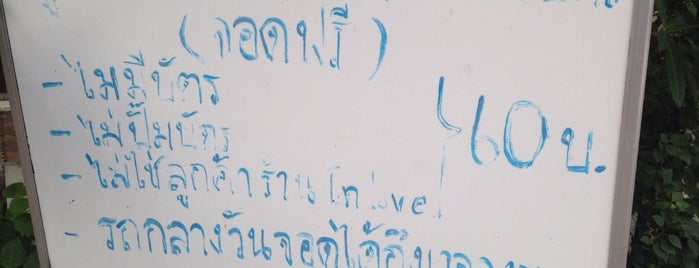 (จอดฟรี)
- ไม่มีบัตร
- ไม่ปั๊มบัตร
- ไม่ใช่ลูกค้าร้าน In Love
60 บ.
- รถกลางวันจอดได้ถึง